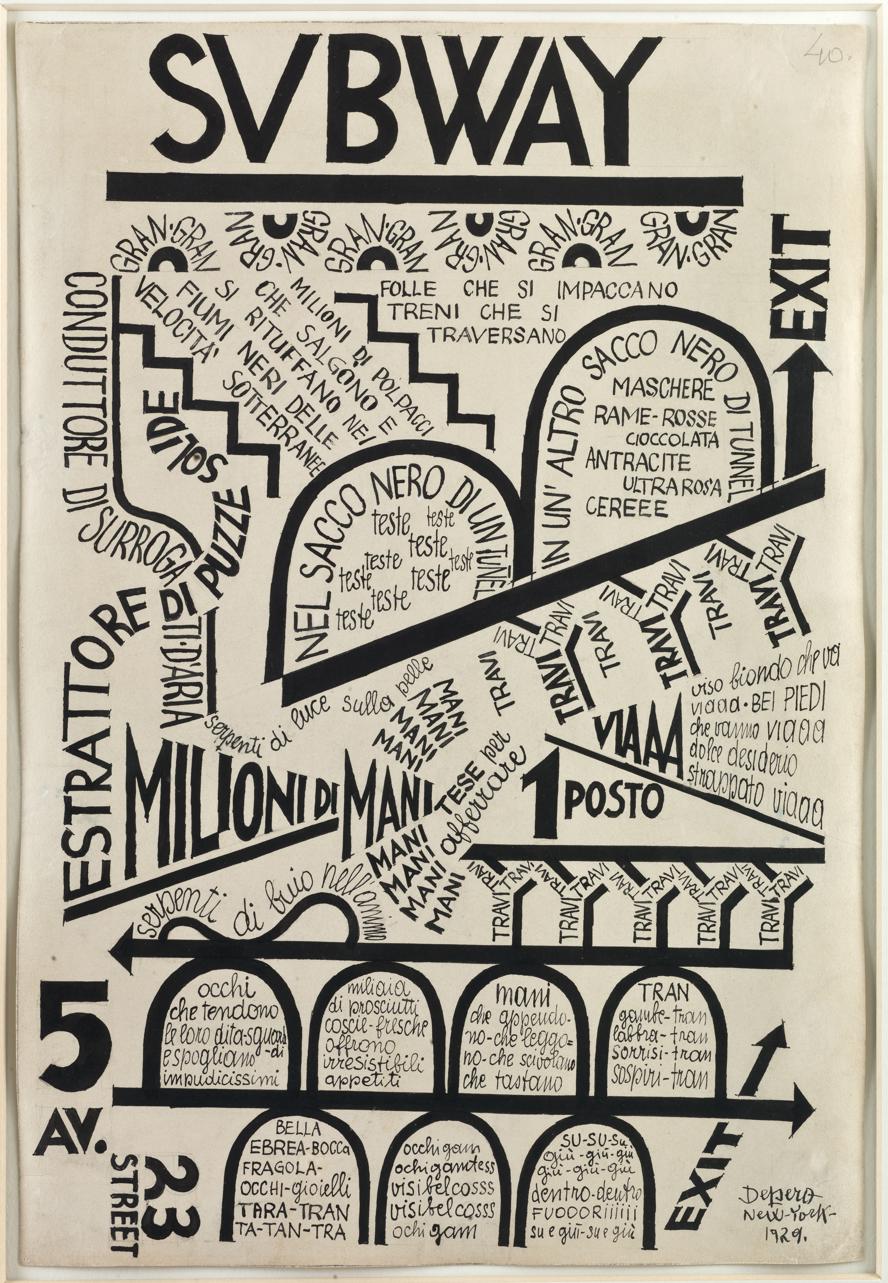 40.
SVBWAY
GRAN·GRAN
GRAN·GRAN
GRAN·GRAN
GRAN·GRAN
GRAN·GRAN
GRAN·GRAN
EXIT
FOLLE CHE SI IMPACCANO
TRENI CHE SI
TRAVERSANO
MILIONI DI POLPACCI
CHE SALGONO E
SI RITUFFANO NEI
FIUMI NERI DELLE
VELOCITA' SOTTERRANEE
CONDUTTORE DI SURROGATI·D'ARIA
ESTRATTORE DI PUZZE SOLIDE
NEL SACCO NERO DI UN TUNEL
teste teste
teste
teste teste
teste teste
teste teste
IN UN' ALTRO SACCO NERO DI TUNNEL
MASCHERE
RAME-ROSSE
CIOCCOLATA
ANTRACITE
ULTRAROSA
CEREEE
TRAVI TRAVI
TRAVI
TRAVI TRAVI
TRAVI
TRAVI TRAVI
TRAVI
TRAVI
serpenti di luce sulla pelle
MANI
MANI
MANI
MAZZI
MILIONI DI MANI
MANI TESE per
MANI afferrare
MANI
MANI
VIAAA
viso biondo che va
viaaa·BEI PIEDI
che vanno viaaa
dolce desiderio
strappato viaaa
1 POSTO
TRAVI TRAVI TRAVI TRAVI TRAVI TRAVI TRAVI TRAVI TRAVI TRAVI
TRAVI TRAVI TRAVI TRAVI TRAVI
serpenti di buio nell'animo
occhi
che tendono
le loro dita-sguardi
e spogliano
impudicissimi
miliaia
di prosciutti
coscie-fresche
offrono
irresistibili
appetiti
mani
che appendo-
no-che leggo=
no-che scivolano
che tastano
TRAN
gambe-tran
labbra-tran
sorrisi-tran
sospiri-tran
5
AV.
23
STREET
BELLA
EBREA-BOCCa
FRAGOLA-
OCCHI-gioielli
TARA-TRAN
TA-TAN-TRA
occhigam
ochigamtess
visibelcosss
visibelcosss
ochigam
SU-SU-Su
giù-giù-giù
giù-giù-giù
dentro-dentro
FUOOORiiiiii
su e giù-su e giù
EXIT
Depero
New-York-
1929.